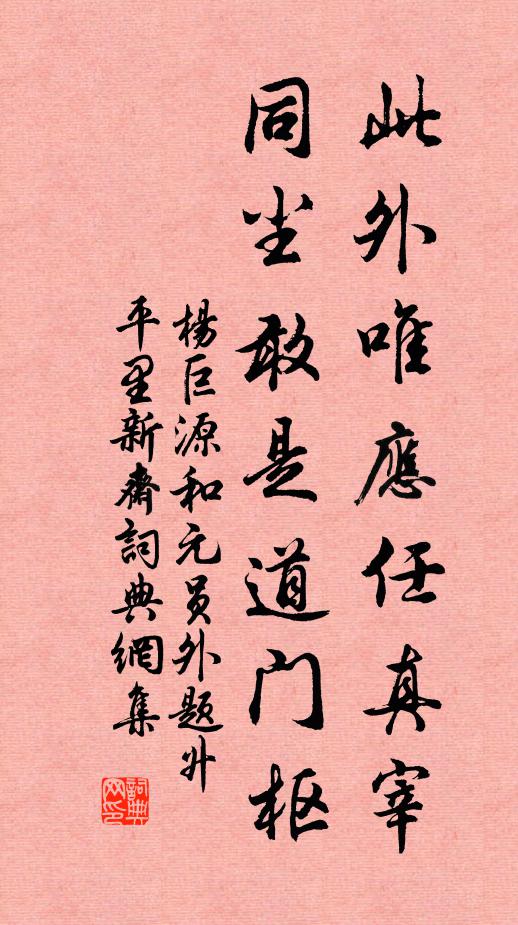 此外唯應任真宰
同尘敢是道门枢
楊巨源和元员外题升
平里新齋詞典網集
詞典
网印